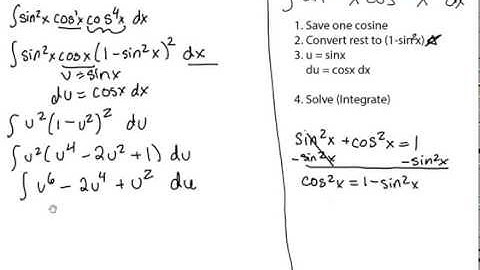 ∫sin²x cos¹x cos⁴x dx
∫sin²x cosx (1-sin²x)² dx
u = sinx
du = cosx dx
∫u²(1-u²)² du
∫u²(u⁴-2u²+1) du
∫u⁶-2u⁴+u² du
1. Save one cosine
2. Convert rest to (1-sin²x)
3. u = sinx
du = cosx dx
4. Solve (Integrate)
sin²x + cos²x = 1
-sin²x -sin²x
cos²x = 1-sin²x